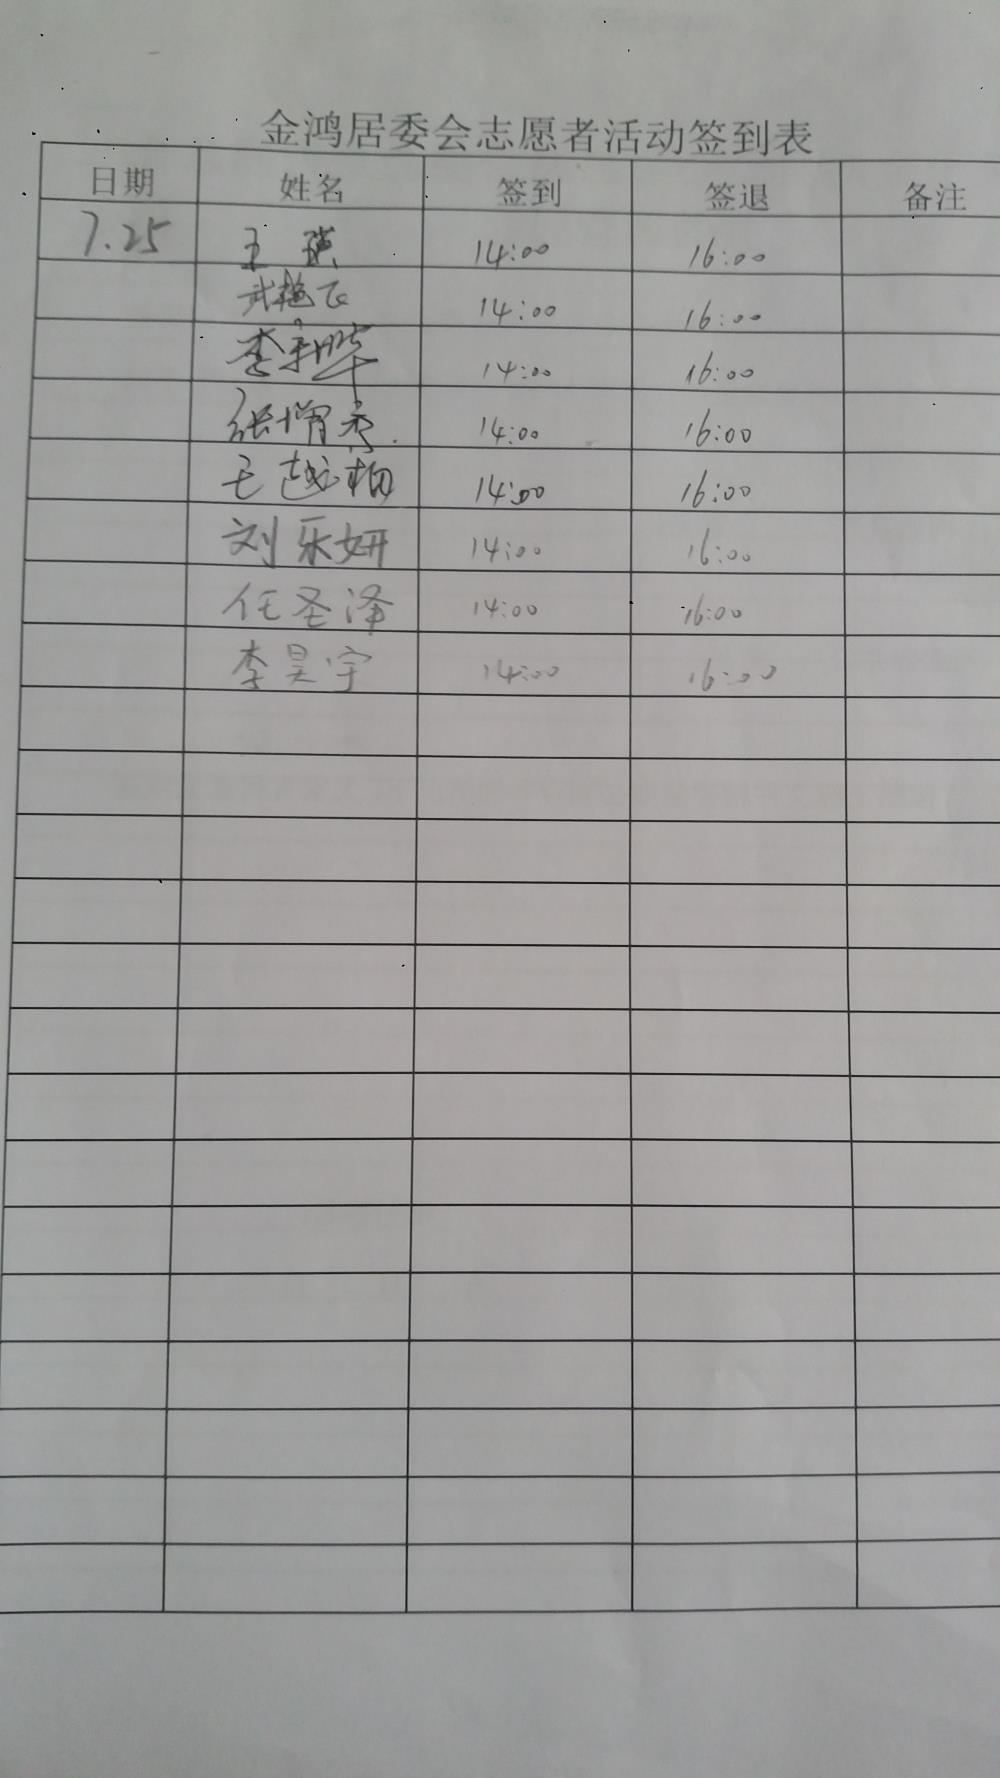 金鸿居委会志愿者活动签到表
日期 姓名 签到 签退 备注
7.25 王 14:00 16:00
武艳飞 14:00 16:00
李 14:00 16:00
张增秀 14:00 16:00
王越 14:00 16:00
刘乐妍 14:00 16:00
任圣泽 14:00 16:00
李昊宇 14:00 16:00